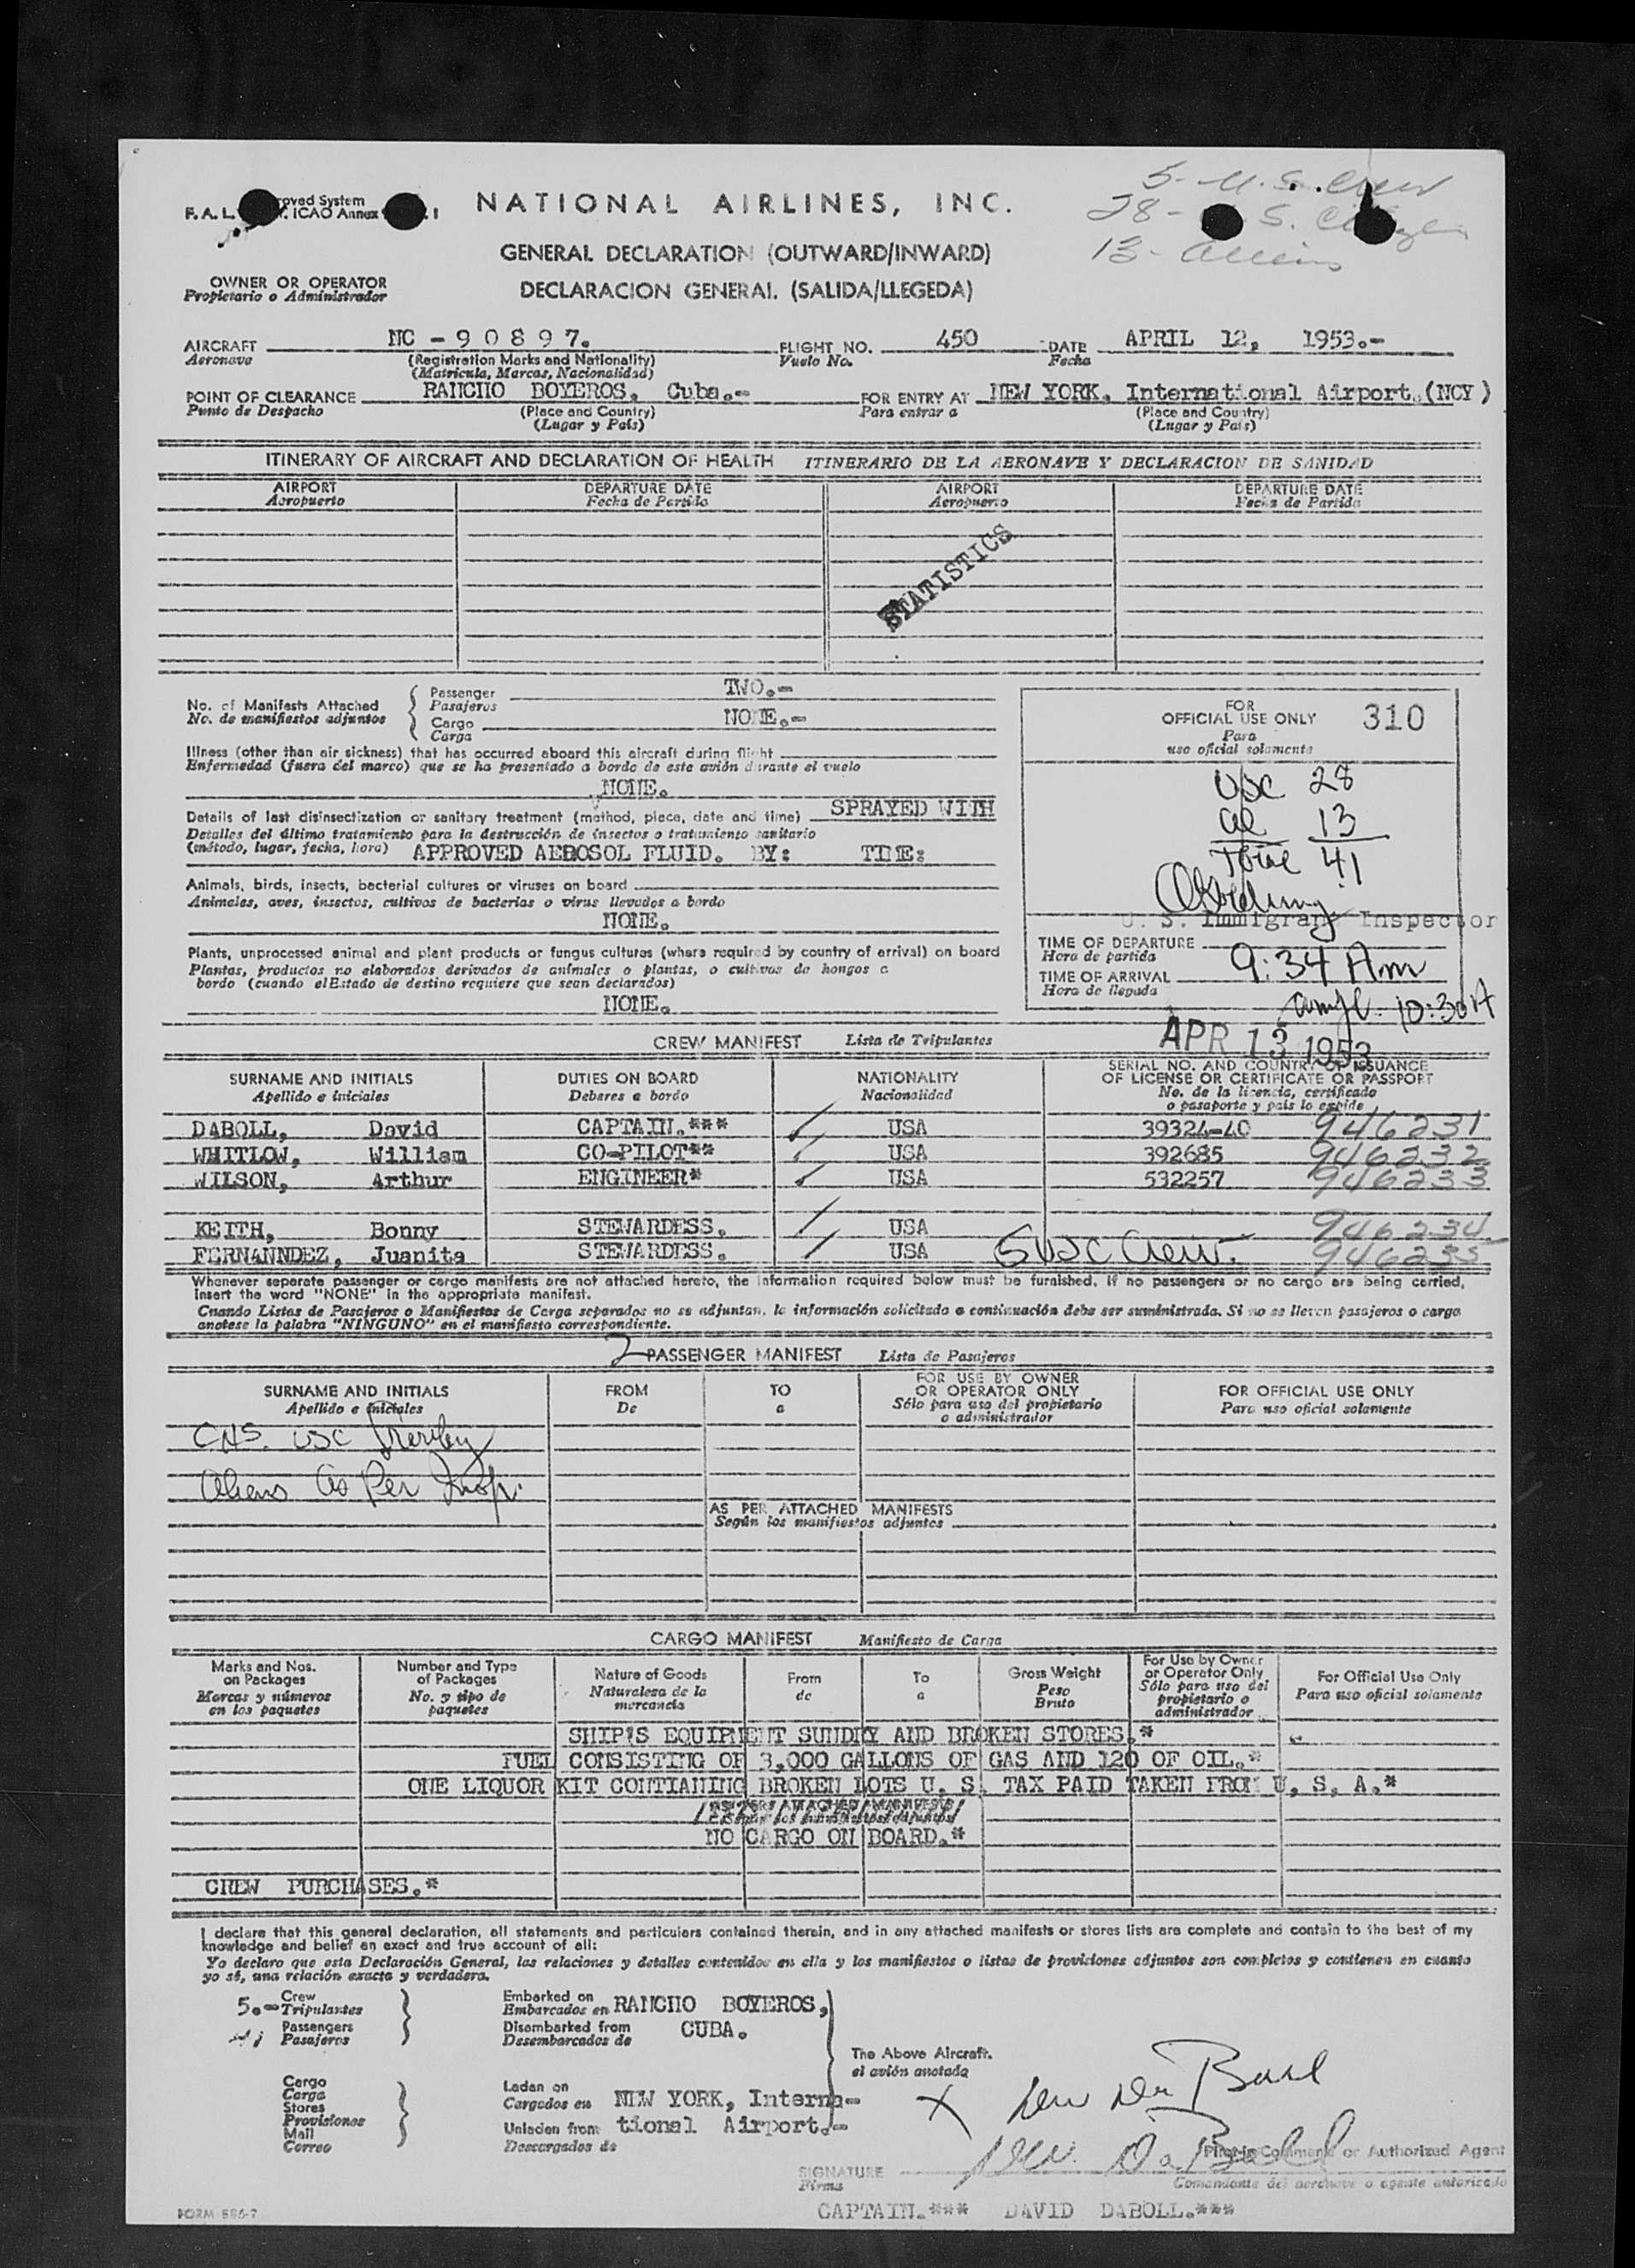 5- U.S. Crew
F.A.L. roved System
ICAO Annex I
NATIONAL AIRLINES, INC.
28- S.
13- aliens
GENERAL DECLARATION (OUTWARD/INWARD)
OWNER OR OPERATOR
Propietario o Administrador
DECLARACION GENERAL (SALIDA/LLEGEDA)
AIRCRAFT NC - 9 0 8 9 7. FLIGHT NO. 450 DATE APRIL 12, 1953.-
Aeronave (Registration Marks and Nationality) Vuelo No. Fecha
(Matricula, Marcas, Nacionalidad)
POINT OF CLEARANCE RANCHO BOYEROS, Cuba.- FOR ENTRY AT NEW YORK, International Airport.(NCY)
Punto de Despacho (Place and Country) Para entrar a (Place and Country)
(Lugar y País) (Lugar y País)
ITINERARY OF AIRCRAFT AND DECLARATION OF HEALTH ITINERARIO DE LA AERONAVE Y DECLARACION DE SANIDAD
AIRPORT DEPARTURE DATE AIRPORT DEPARTURE DATE
Aeropuerto Fecha de Partida Aeropuerto Fecha de Partida
STATISTICS
No. of Manifests Attached Passenger TWO.-
No. de manifiestos adjuntos Pasajeros
Cargo NONE.-
Carga
FOR
OFFICIAL USE ONLY 310
Para
uso oficial solamente
Illness (other than air sickness) that has occurred aboard this aircraft during flight
Enfermedad (fuera del marco) que se ha presentado a bordo de este avión durante el vuelo
NONE.
USC 28
Details of last disinsectization or sanitary treatment (method, place, date and time) SPRAYED WITH
Detalles del último tratamiento para la destrucción de insectos o tratamiento sanitario
(método, lugar, fecha, hora) APPROVED AEROSOL FLUID. BY: TIME:
al 13
Total 41
Animals, birds, insects, bacterial cultures or viruses on board
Animales, aves, insectos, cultivos de bacterias o virus llevados a bordo
NONE.
U. S. Immigrant Inspector
Plants, unprocessed animal and plant products or fungus cultures (where required by country of arrival) on board
Plantas, productos no elaborados derivados de animales o plantas, o cultivos de hongos a
bordo (cuando elEstado de destino requiere que sean declarados)
NONE.
TIME OF DEPARTURE
Hora de partida 9:34 Am
TIME OF ARRIVAL
Hora de llegada 10:30A
APR 13 1953
CREW MANIFEST Lista de Tripulantes
SURNAME AND INITIALS DUTIES ON BOARD NATIONALITY SERIAL NO. AND COUNTRY OF ISSUANCE
OF LICENSE OR CERTIFICATE OR PASSPORT
Apellido e iniciales Deberes a bordo Nacionalidad No. de la licencia, certificado
o pasaporte y país lo expide
DABOLL, David CAPTAIN.*** USA 39324-40 946231
WHITLOW, William CO-PILOT** USA 392685 946232
WILSON, Arthur ENGINEER* USA 532257 946233
KEITH, Bonny STEWARDESS. USA 946234
FERNANNDEZ, Juanita STEWARDESS. USA 5 USC Crew. 946235
Whenever separate passenger or cargo manifests are not attached hereto, the information required below must be furnished. If no passengers or no cargo are being carried,
insert the word "NONE" in the appropriate manifest.
Cuando Listas de Pasajeros o Manifiestos de Carga separados no se adjuntan, la información solicitada a continuación debe ser suministrada. Si no se lleven pasajeros o carga
anotese la palabra "NINGUNO" en el manifiesto correspondiente.
2 PASSENGER MANIFEST Lista de Pasajeros
SURNAME AND INITIALS FROM TO FOR USE BY OWNER FOR OFFICIAL USE ONLY
OR OPERATOR ONLY
Apellido e iniciales De a Sólo para uso del propietario Para uso oficial solamente
o administrador
CHS. USC
Aliens as Per Insp.
AS PER ATTACHED MANIFESTS
Según los manifiestos adjuntos
CARGO MANIFEST Manifiesto de Carga
Marks and Nos. on Packages Number and Type of Packages Nature of Goods From To Gross Weight For Use by Owner or Operator Only For Official Use Only
Marcas y números en los paquetes No. y tipo de paquetes Naturaleza de la mercancía de a Peso Bruto Sólo para uso del propietario o administrador Para uso oficial solamente
SHIP'S EQUIPMENT SUNDRY AND BROKEN STORES.*
FUEL CONSISTING OF 3,000 GALLONS OF GAS AND 120 OF OIL.*
ONE LIQUOR KIT CONTIANING BROKEN LOTS U. S. TAX PAID TAKEN FROM U. S. A.*
NO CARGO ON BOARD.*
CREW PURCHASES.*
I declare that this general declaration, all statements and particulars contained therein, and in any attached manifests or stores lists are complete and contain to the best of my
knowledge and belief an exact and true account of all:
Yo declaro que esta Declaración General, las relaciones y detalles contenidos en ella y los manifiestos o listas de provisiones adjuntos son completos y contienen en cuanto
yo sé, una relación exacta y verdadera.
5.- Crew Embarked on
Tripulantes Embarcados en RANCHO BOYEROS,
41 Passengers Disembarked from CUBA.
Pasajeros Desembarcados de
The Above Aircraft.
el avión anotada
Cargo Laden on
Carga Cargados en NEW YORK, Interna-
Stores
Provisiones Unladen from tional Airport.-
Mail Descargados de
Correo
X
Pilot in Command or Authorized Agent
SIGNATURE
Firma Comandante del aeronave o agente autorizado
CAPTAIN.*** DAVID DABOLL.***
FORM 886-7